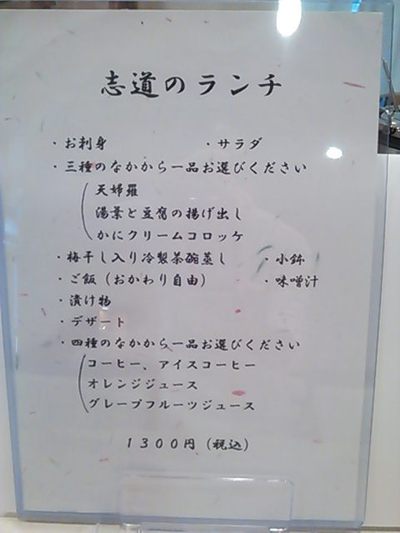 志道のランチ
・お刺身　・サラダ
・三種のなかから一品お選びください
天婦羅
湯葉と豆腐の揚げ出し
かにクリームコロッケ
・梅干し入り冷製茶碗蒸し　・小鉢
・ご飯（おかわり自由）　・味噌汁
・漬け物
・デザート
・四種のなかから一品お選びください
コーヒー、アイスコーヒー
オレンジジュース
グレープフルーツジュース
１３００円（税込）